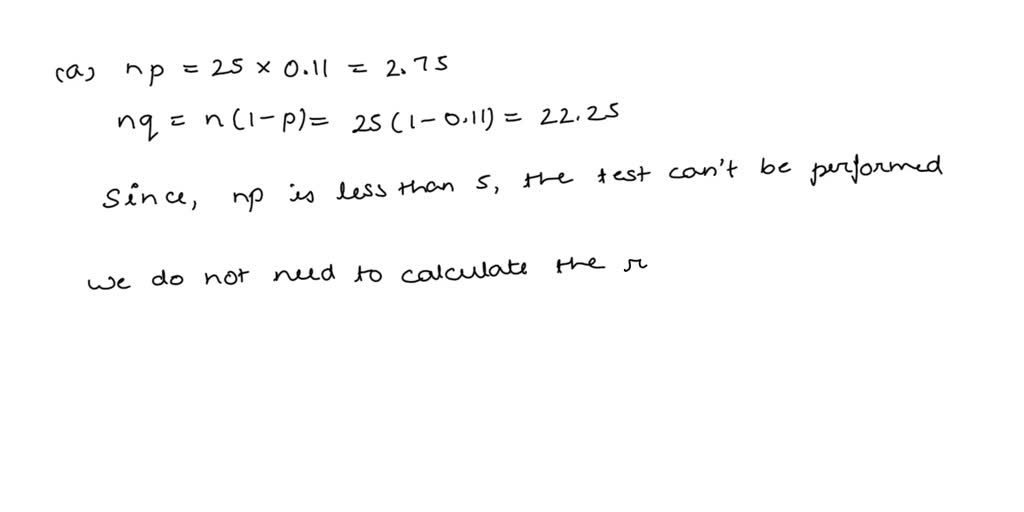 (a) np = 25 × 0.11 = 2.75
nq = n(1-p)= 25(1-0.11) = 22.25
Since, np is less than 5, the test can't be performed
we do not need to calculate the